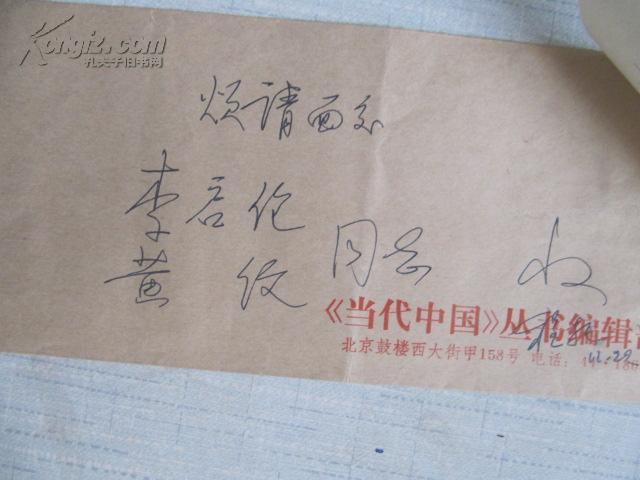 Kongfz.com
孔夫子旧书网
烦请面交
李启伦
黄纹 同志 收
《当代中国》丛书编辑部
北京鼓楼西大街甲158号 电话：4
11.29